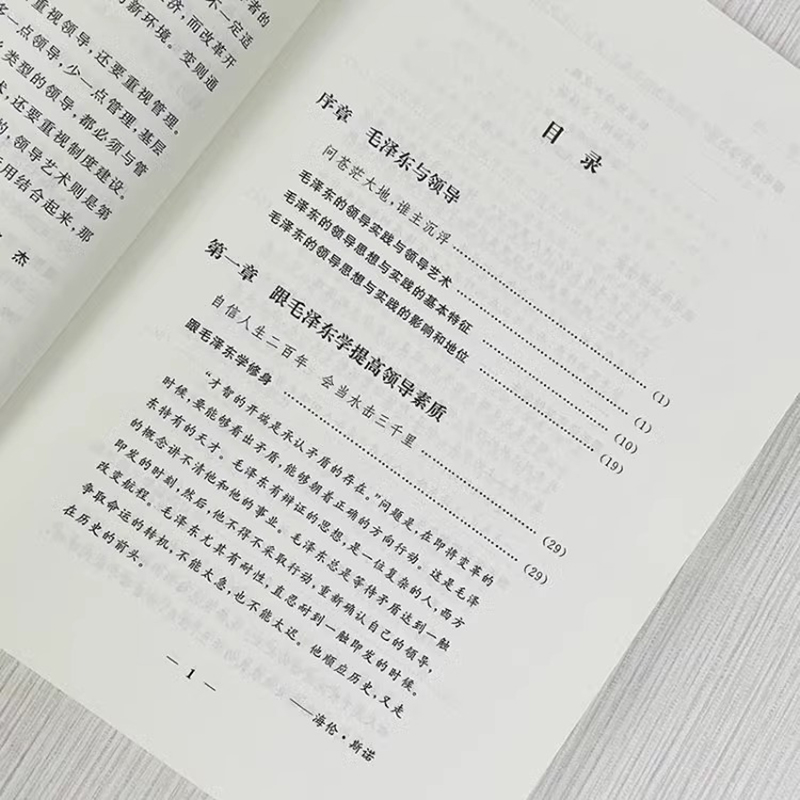 者的
不一定适
济,而改革开
新环境。变则通
重视领导,还要重视管理。
多一点领导,少一点管理,基层
类型的领导,都必须与管
术,还要重视制度建设。
的,领导艺术则是第
运用结合起来,那
杰
目录
序章 毛泽东与领导
问苍茫大地,谁主沉浮 (1)
毛泽东的领导实践与领导艺术 (1)
毛泽东的领导思想与实践的基本特征 (10)
毛泽东的领导思想与实践的影响和地位 (19)
第一章 跟毛泽东学提高领导素质
自信人生二百年 会当水击三千里 (29)
跟毛泽东学修身 (29)
“才智的开端是承认矛盾的存在。”问题是,在即将变革的
时候,要能够看出矛盾,能够朝着正确的方向行动。这是毛泽
东特有的天才。毛泽东有辩证的思想,是一位复杂的人,西方
的概念讲不清他和他的事业。毛泽东总是等待矛盾达到一触
即发的时刻,然后,他不得不采取行动,重新确认自己的领导,
改变航程。毛泽东尤其有耐性,直忍耐到一触即发的时候。
争取命运的转机,不能太急,也不能太迟。他顺应历史,又走
在历史的前头。
——海伦·斯诺
— 1 —